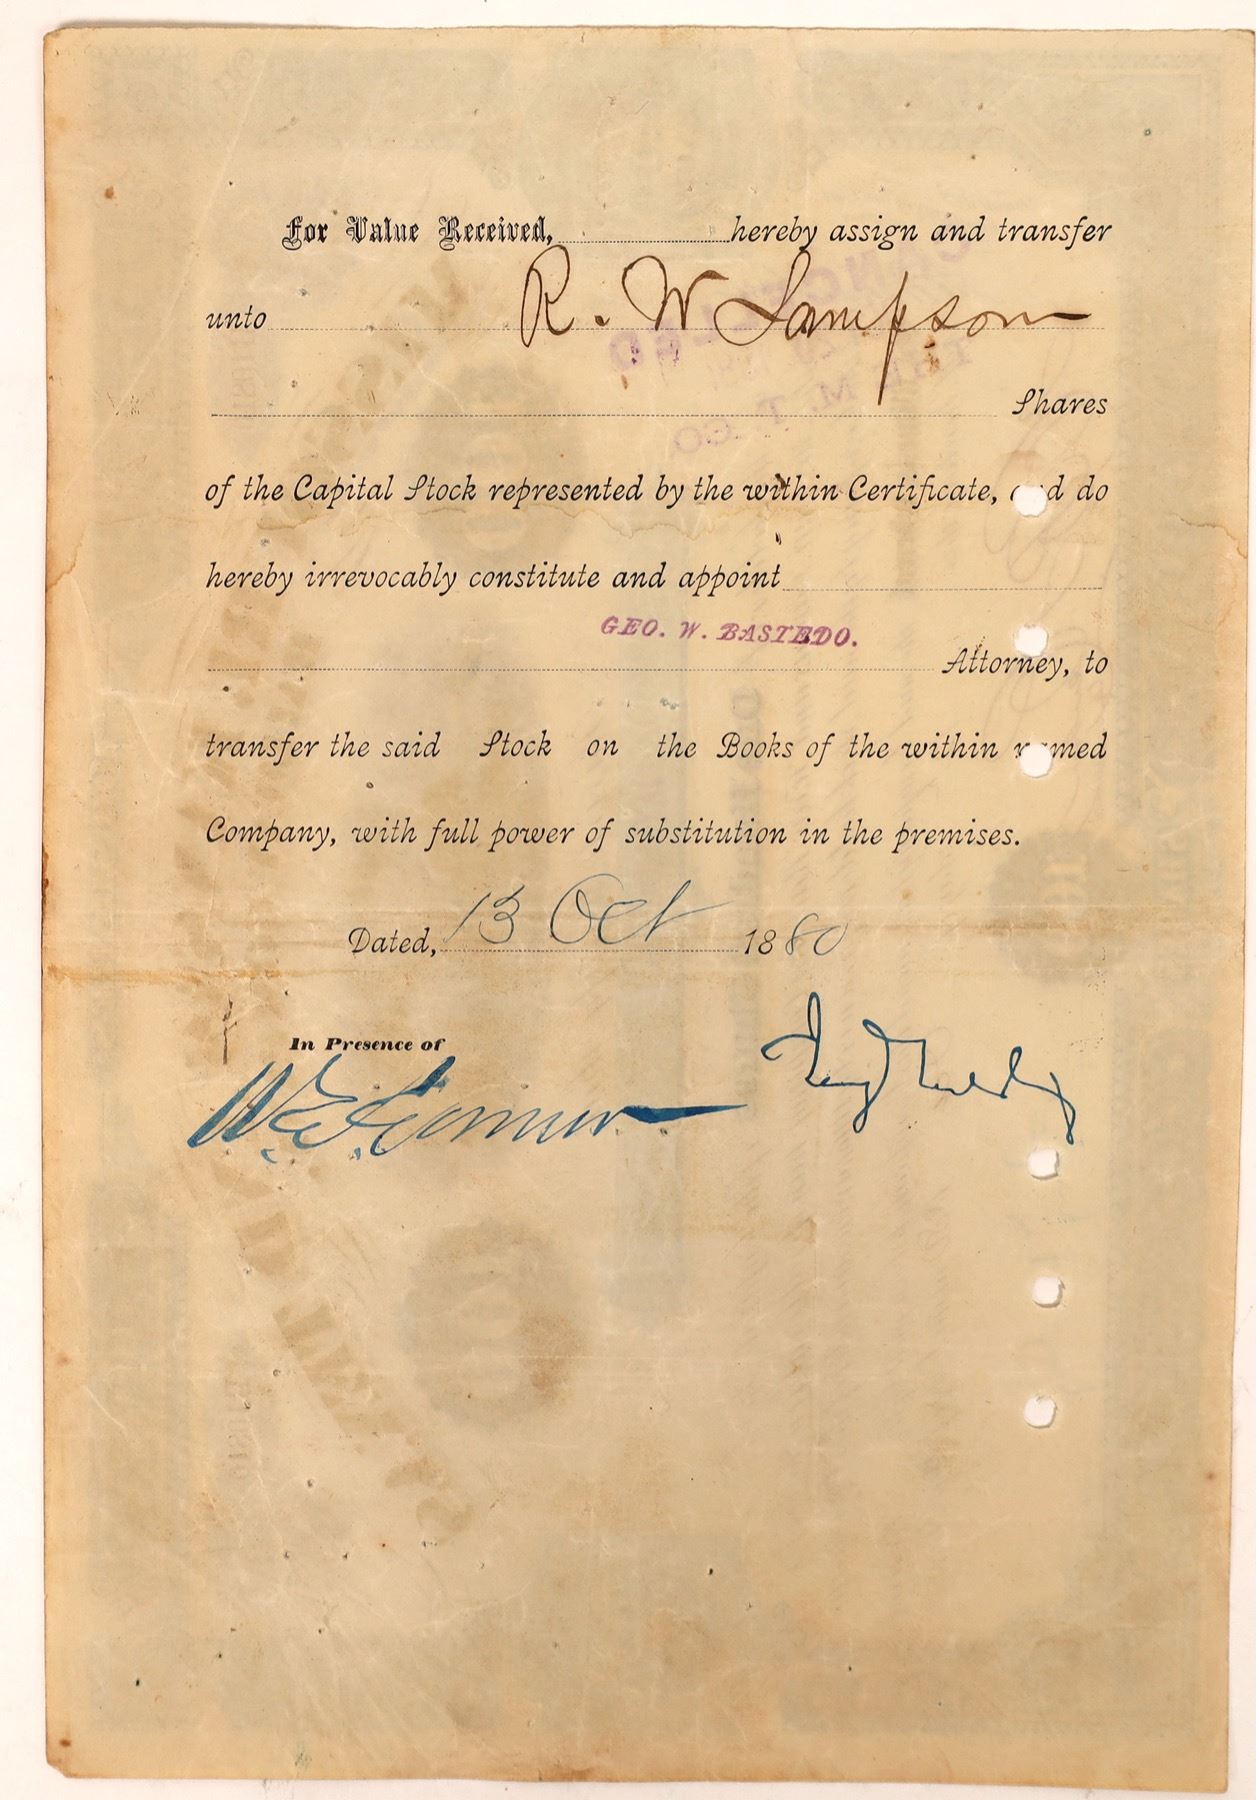 For Value Received, hereby assign and transfer
unto R. W Sampson
Shares
of the Capital Stock represented by the within Certificate, and do
hereby irrevocably constitute and appoint
GEO. W. BASTEDO.
Attorney, to
transfer the said Stock on the Books of the within named
Company, with full power of substitution in the premises.
Dated, 13 Oct 1880
In Presence of
W. E. Connor